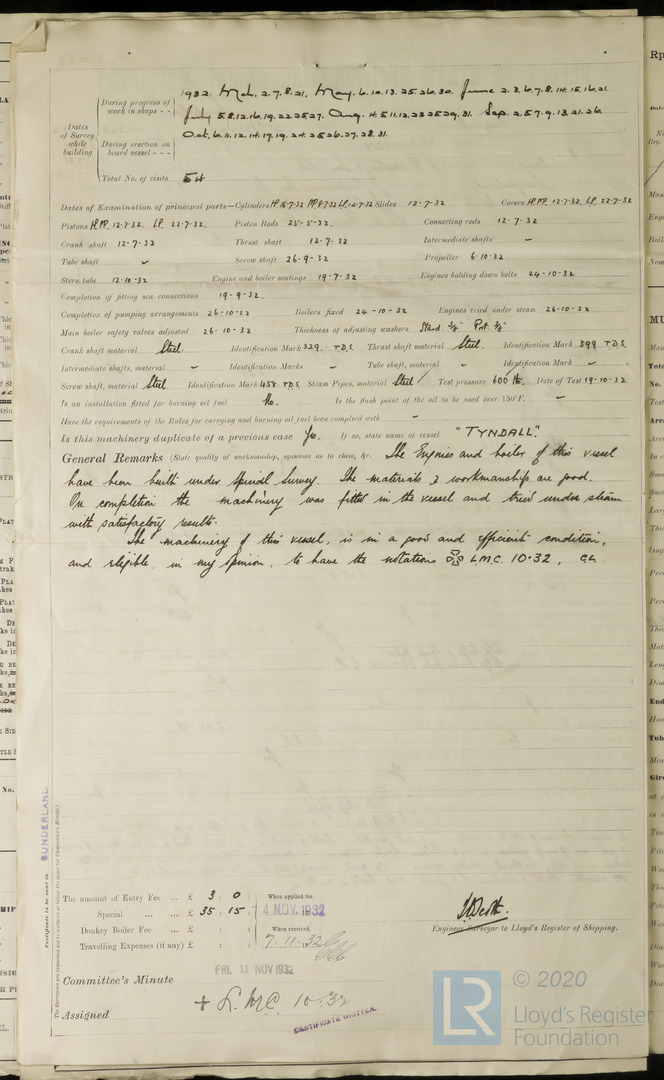 1932. Mch. 2.7.8.21. May. 6.10.13.25.26.30. June 2.3.6.7.8.14.15.16.21.
During progress of work in shops - - -
July 5.8.12.16.19.22.25.27. Aug. 4.5.11.12.23.25.29.31. Sep. 2.5.7.9.13.21.26
Dates of Survey while building
Oct. 6.11.12.14.17.19.24.25.26.27.28.31.
During erection on board vessel - - -
Total No. of visits 54
Dates of Examination of principal parts—Cylinders HP. 18-7-32 MP. 8-7-32 LP. 12-7-32 Slides 12-7-32 Covers HP. MP. 12-7-32. LP. 22-7-32
Pistons HP. MP. 12-7-32. LP. 22-7-32. Piston Rods 25-5-32. Connecting rods 12-7-32
Crank shaft 12-7-32 Thrust shaft 12-7-32 Intermediate shafts ~
Tube shaft ~ Screw shaft 26-9-32 Propeller 6-10-32
Stern tube 12-10-32 Engine and boiler seatings 19-7-32 Engines holding down bolts 24-10-32
Completion of fitting sea connections 19-9-32.
Completion of pumping arrangements 26-10-32 Boilers fixed 24-10-32 Engines tried under steam 26-10-32
Main boiler safety valves adjusted 26-10-32 Thickness of adjusting washers Stard. 3/8" Port. 3/8"
Crank shaft material Steel. Identification Mark 329. T.D.S. Thrust shaft material Steel. Identification Mark 399 T.D.S.
Intermediate shafts, material ~ Identification Marks ~ Tube shaft, material ~ Identification Mark ~
Screw shaft, material Steel Identification Mark 458 T.D.S Steam Pipes, material Steel / Test pressure 600 lb. Date of Test 19-10-32
Is an installation fitted for burning oil fuel No. Is the flash point of the oil to be used over 150°F. ~
Have the requirements of the Rules for carrying and burning oil fuel been complied with ~
Is this machinery duplicate of a previous case Yes. If so, state name of vessel "TYNDALL".
General Remarks (State quality of workmanship, opinions as to class, &c. The Engines and boiler of this vessel
have been built under Special Survey. The materials & workmanship are good.
On completion the machinery was fitted in the vessel and tried under steam
with satisfactory results.
The machinery of this vessel, is in a good and efficient condition,
and eligible, in my opinion, to have the notations L.M.C. 10-32. CL
SUNDERLAND
Certificate to be sent to
The amount of Entry Fee ... £ 3 : 0 : When applied for,
Special ... ... £ 35 : 15 : 4 NOV. 1932
Donkey Boiler Fee ... £ : : When received,
Travelling Expenses (if any) £ : : 7.11.32
Engineer Surveyor to Lloyd's Register of Shipping.
Committee's Minute FRI. 11 NOV 1932
Assigned + L.M.C. 10.32
CERTIFICATE WRITTEN.
LR
© 2020
Lloyd's Register
Foundation